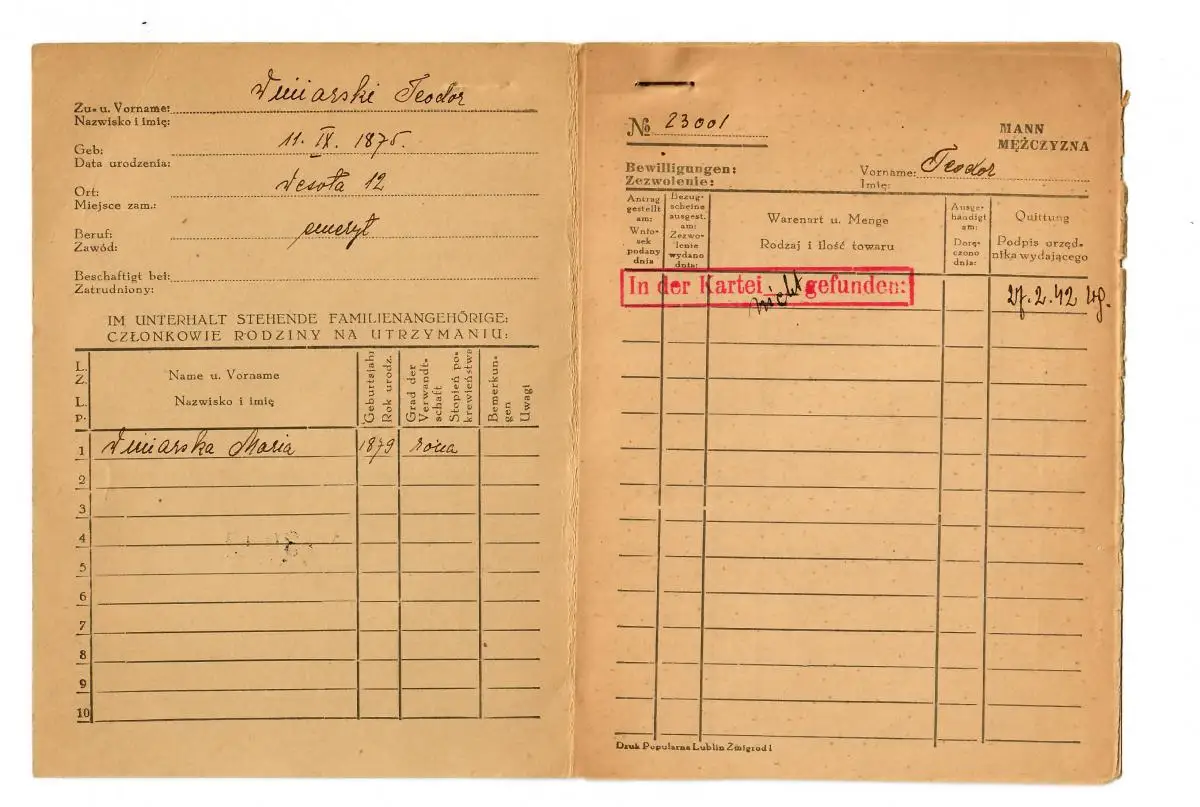 Zu- u. Vorname: Winiarski Teodor
Nazwisko i imię:
Geb: 11. IX. 1875.
Data urodzenia:
Ort: Wesoła 12
Miejsce zam.:
Beruf: emeryt
Zawód:
Beschaftigt bei:
Zatrudniony:
IM UNTERHALT STEHENDE FAMILIENANGEHÖRIGE:
CZŁONKOWIE RODZINY NA UTRZYMANIU:
L. Z. L. p.
Name u. Vorname
Nazwisko i imię
Geburtsjahr
Rok urodz.
Grad der Verwandt-
schaft
Stopień po-
krewieństwa
Bemerkun-
gen
Uwagi
1 Winiarska Maria 1879 żona
2
3
4
5
6
7
8
9
10
№ 23001
MANN
MĘŻCZYZNA
Bewilligungen:
Zezwolenie:
Vorname: Teodor
Imię:
Antrag
gestellt
am:
Wnio-
sek
podany
dnia
Bezug-
scheine
ausgest.
am:
Zezwo-
lenie
wydano
dnia:
Warenart u. Menge
Rodzaj i ilość towaru
Ausge-
händigt
am:
Dorę-
czono
dnia:
Quittung
Podpis urzęd-
nika wydającego
In der Kartei nicht gefunden:
27.2.42
Druk Popularna Lublin Żmigród 1